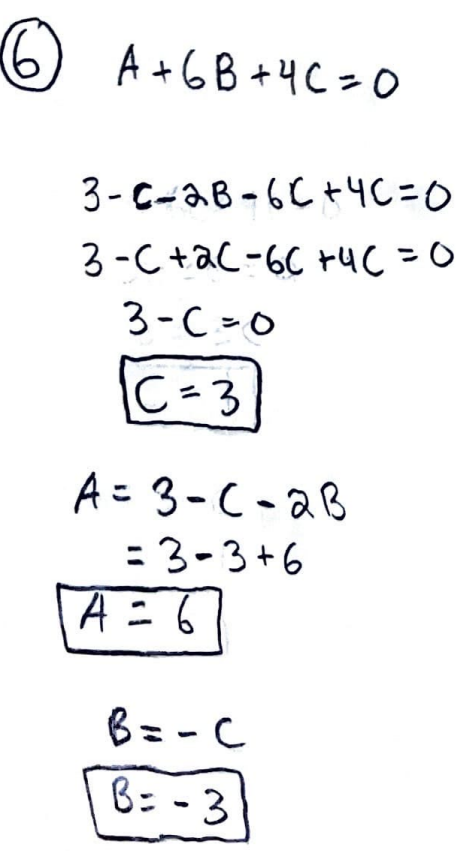 6 A + 6B + 4C = 0
3 - C - 2B - 6C + 4C = 0
3 - C + 2C - 6C + 4C = 0
3 - C = 0
C = 3
A = 3 - C - 2B
= 3 - 3 + 6
A = 6
B = - C
B = - 3